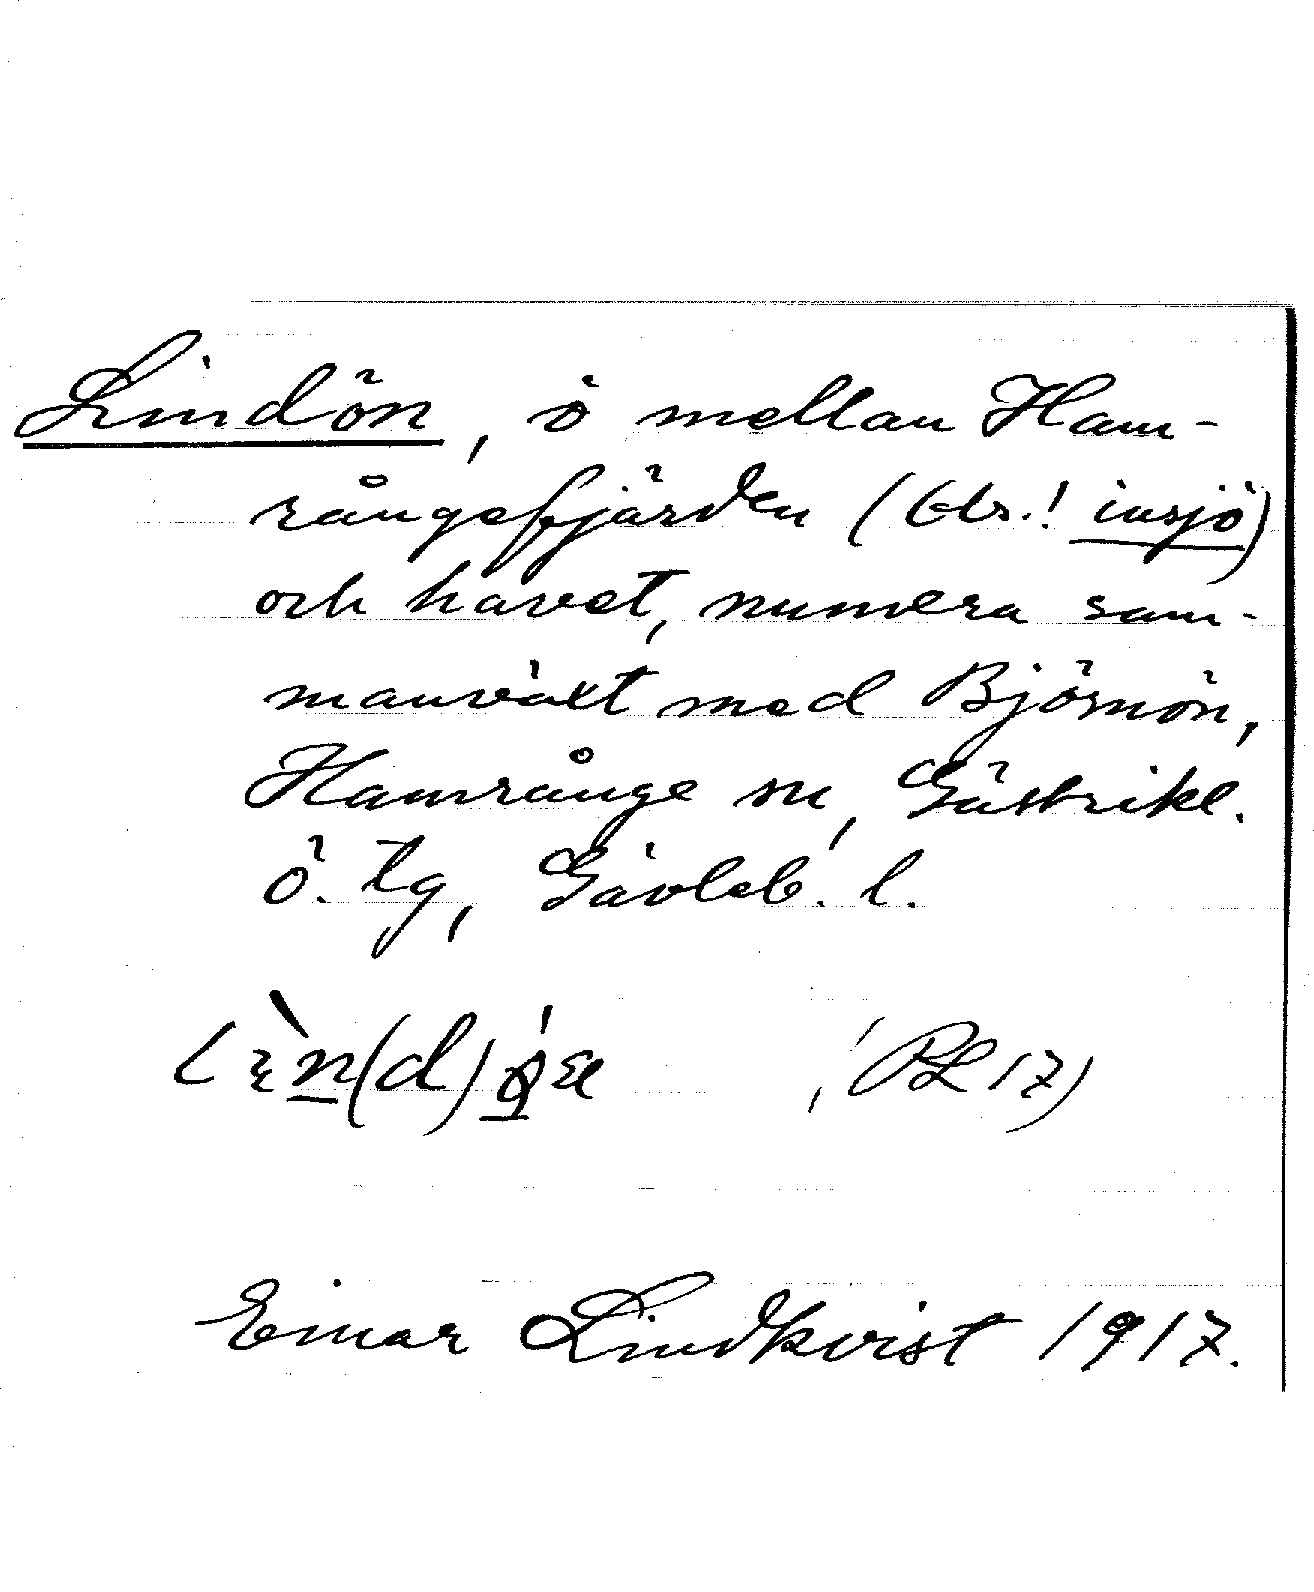 Lindön, ö mellan Ham-
rångefjärden (Obs.! insjö)
och havet, numera sam-
manväxt med Björnön,
Hamrånge sn, Gästrikl.
Ö. tg, Gävleb. l.
(PL 17)
Einar Lindkvist 1917.